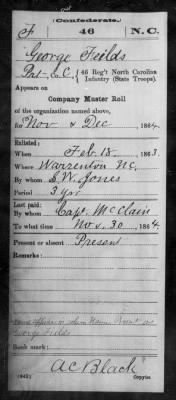 (Confederate.)
F 46 N.C.
George Feilds
Pvt., Co. C, { 46 Reg't North Carolina
Infantry (State Troops).
Appears on
Company Muster Roll
of the organization named above,
for Nov & Dec, 1864.
Enlisted:
When Feb. 15, 1863.
Where Warrenton N.C.
By whom E. W. Jones
Period 3 yrs
Last paid:
By whom Capt. McClain
To what time Nov. 30, 1864.
Present or absent Present
Remarks:
George Fields
Book mark:
A C Black
(642) Copyist.